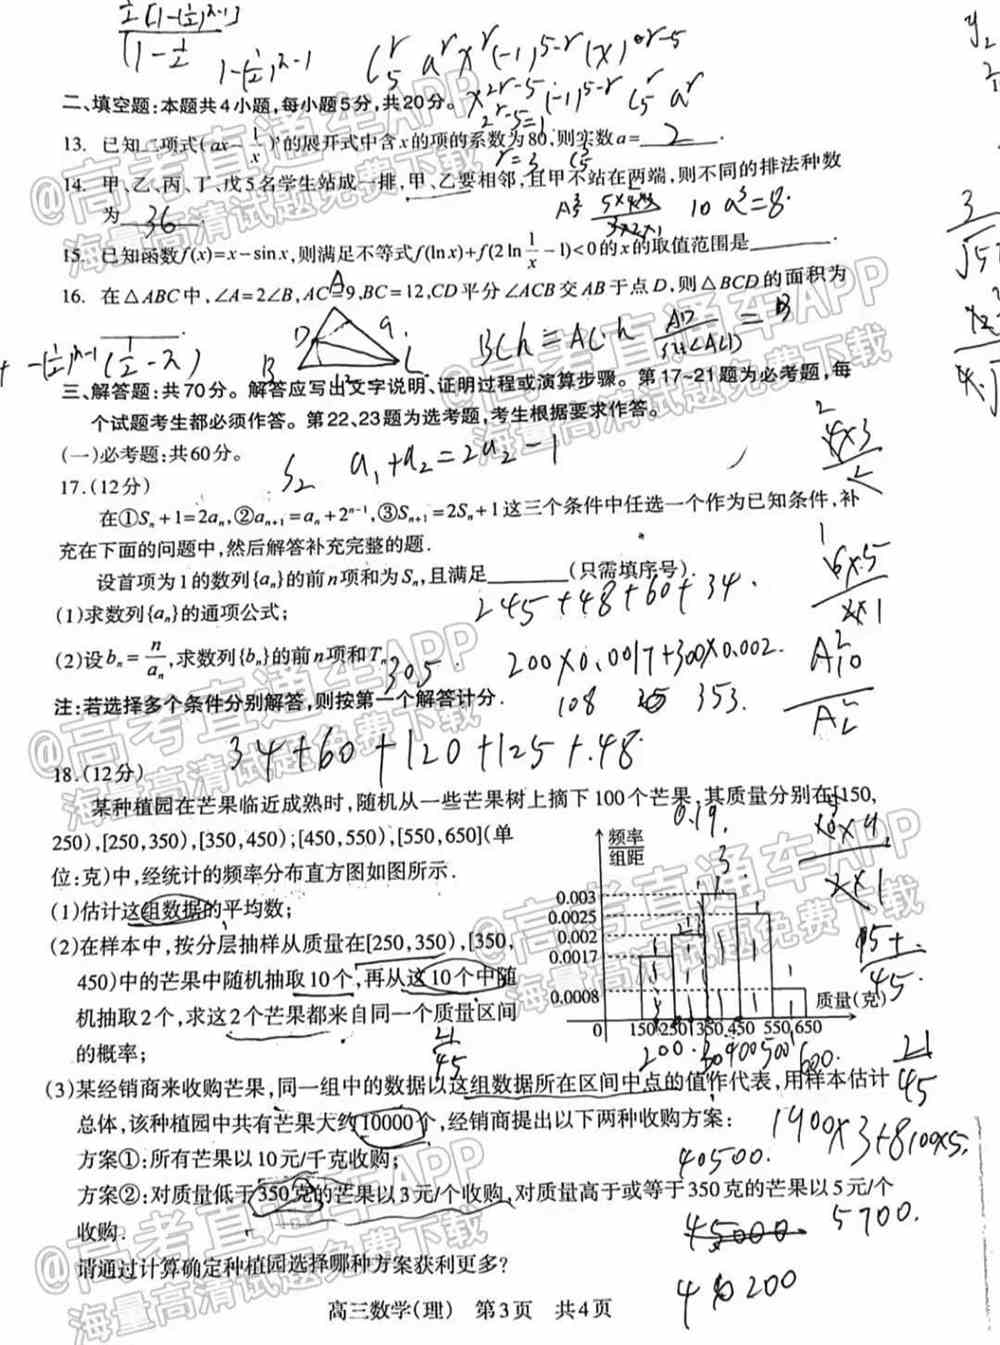 ½[1-(½)ⁿ⁻¹]
1-½
1-(½)ⁿ⁻¹
二、填空题:本题共4小题,每小题5分,共20分。
13. 已知二项式(ax-1/x)⁵的展开式中含x的项的系数为80,则实数a=2.
14. 甲、乙、丙、丁、戊5名学生站成一排,甲、乙要相邻,且甲不站在两端,则不同的排法种数
为 36 .
10 a³=8.
15. 已知函数f(x)=x-sinx,则满足不等式f(lnx)+f(2ln1/x-1)<0的x的取值范围是______.
16. 在△ABC中,∠A=2∠B,AC=9,BC=12,CD平分∠ACB交AB于点D,则△BCD的面积为
______.
三、解答题:共70分。解答应写出文字说明、证明过程或演算步骤。第17~21题为必考题,每
个试题考生都必须作答。第22、23题为选考题,考生根据要求作答。
(一)必考题:共60分。
S₂ a₁+a₂=2a₂-1
17.(12分)
在①Sₙ+1=2aₙ,②aₙ₊₁=aₙ+2ⁿ⁻¹,③Sₙ₊₁=2Sₙ+1这三个条件中任选一个作为已知条件,补
充在下面的问题中,然后解答补充完整的题.
设首项为1的数列{aₙ}的前n项和为Sₙ,且满足______(只需填序号).
245+48+60+34.
(1)求数列{aₙ}的通项公式;
(2)设bₙ=n/aₙ,求数列{bₙ}的前n项和Tₙ.
305
200×0.0017+300×0.002.
注:若选择多个条件分别解答,则按第一个解答计分.
108 353.
34+60+120+125+48.
18.(12分)
某种植园在芒果临近成熟时,随机从一些芒果树上摘下100个芒果,其质量分别在[150,
250),[250,350),[350,450);[450,550),[550,650](单
位:克)中,经统计的频率分布直方图如图所示.
(1)估计这组数据的平均数;
(2)在样本中,按分层抽样从质量在[250,350),[350,
450)中的芒果中随机抽取10个,再从这10个中随
机抽取2个,求这2个芒果都来自同一个质量区间
的概率;
21/45
0.19.
频率
组距
0.003
0.0025
0.002
0.0017
0.0008
0 150 250 350 450 550 650
质量(克)
21/45
(3)某经销商来收购芒果,同一组中的数据以这组数据所在区间中点的值作代表,用样本估计
总体,该种植园中共有芒果大约10000个,经销商提出以下两种收购方案:
1900×3+8100×5.
方案①:所有芒果以10元/千克收购;
40500.
方案②:对质量低于350克的芒果以3元/个收购,对质量高于或等于350克的芒果以5元/个
收购.
5700.
请通过计算确定种植园选择哪种方案获利更多?
高三数学(理) 第3页 共4页
@高考直通车APP
海量高清试题免费下载